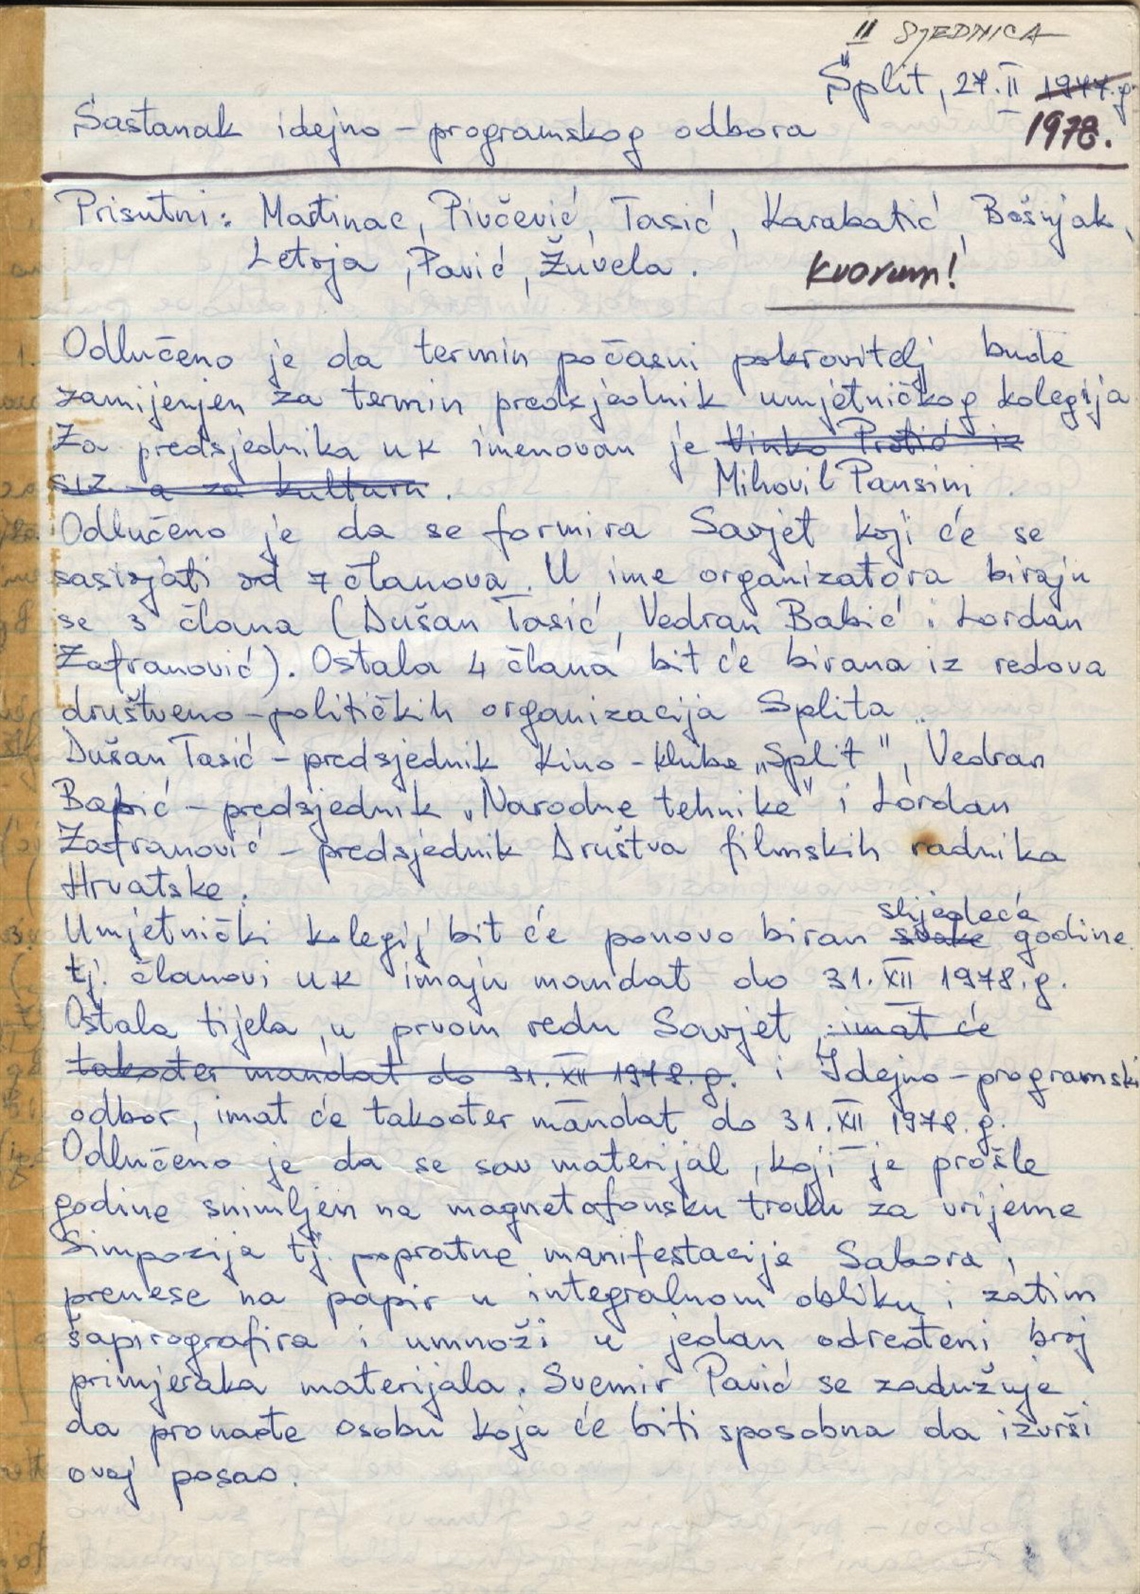 II SJEDNICA
Split, 27. II 1977.g.
1978.
Sastanak idejno - programskog odbora
Prisutni: Martinac, Pivčević, Tasić, Karabatić, Bošnjak,
Letoja, Pavić, Žuvela.
Kvorum!
Odlučeno je da termin počasni pokrovitelj bude
zamijenjen za termin predsjednik umjetničkog kolegija
Za predsjednika UK imenovan je Vinko Protić iz
SIZ-a za kulturu.
Mihovil Pansini.
Odlučeno je da se formira Savjet koji će se
sastojati od 7 članova. U ime organizatora biraju
se 3 člana (Dušan Tasić, Vedran Babić i Lordan
Zafranović). Ostala 4 člana bit će birana iz redova
društveno-političkih organizacija Splita.
Dušan Tasić - predsjednik Kino-kluba „Split", Vedran
Babić - predsjednik „Narodne tehnike" i Lordan
Zafranović - predsjednik Društva filmskih radnika
Hrvatske.
slijedeće
Umjetnički kolegij bit će ponovo biran svake godine
tj. članovi UK imaju mandat do 31. XII 1978.g.
Ostala tijela, u prvom redu Savjet, imat će
također mandat do 31. XII 1978.g. i Idejno-programski
odbor, imat će također mandat do 31. XII 1978.g.
Odlučeno je da se sav materijal, koji je prošle
godine snimljen na magnetofonsku traku za vrijeme
Simpozija tj. popratne manifestacije Sabora,
prenese na papir u integralnom obliku i zatim
šapirografira i umnoži u jedan određeni broj
primjeraka materijala. Svemir Pavić se zadužuje
da pronađe osobu koja će biti sposobna da izvrši
ovaj posao.